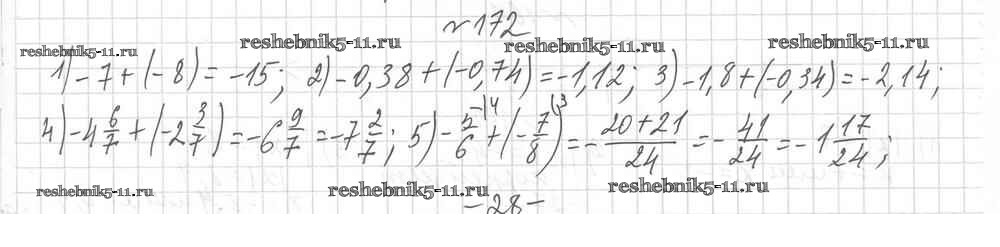 №172
1) -7 + (-8) = -15; 2) -0,38 + (-0,74) = -1,12; 3) -1,8 + (-0,34) = -2,14;
4) -4 6/7 + (-2 3/7) = -6 9/7 = -7 2/7; 5) -5/6 |4 + (-7/8 |3) = -(20+21)/24 = -41/24 = -1 17/24;
-28-
reshebnik5-11.ru
reshebnik5-11.ru
reshebnik5-11.ru
reshebnik5-11.ru
reshebnik5-11.ru
reshebnik5-11.ru
reshebnik5-11.ru